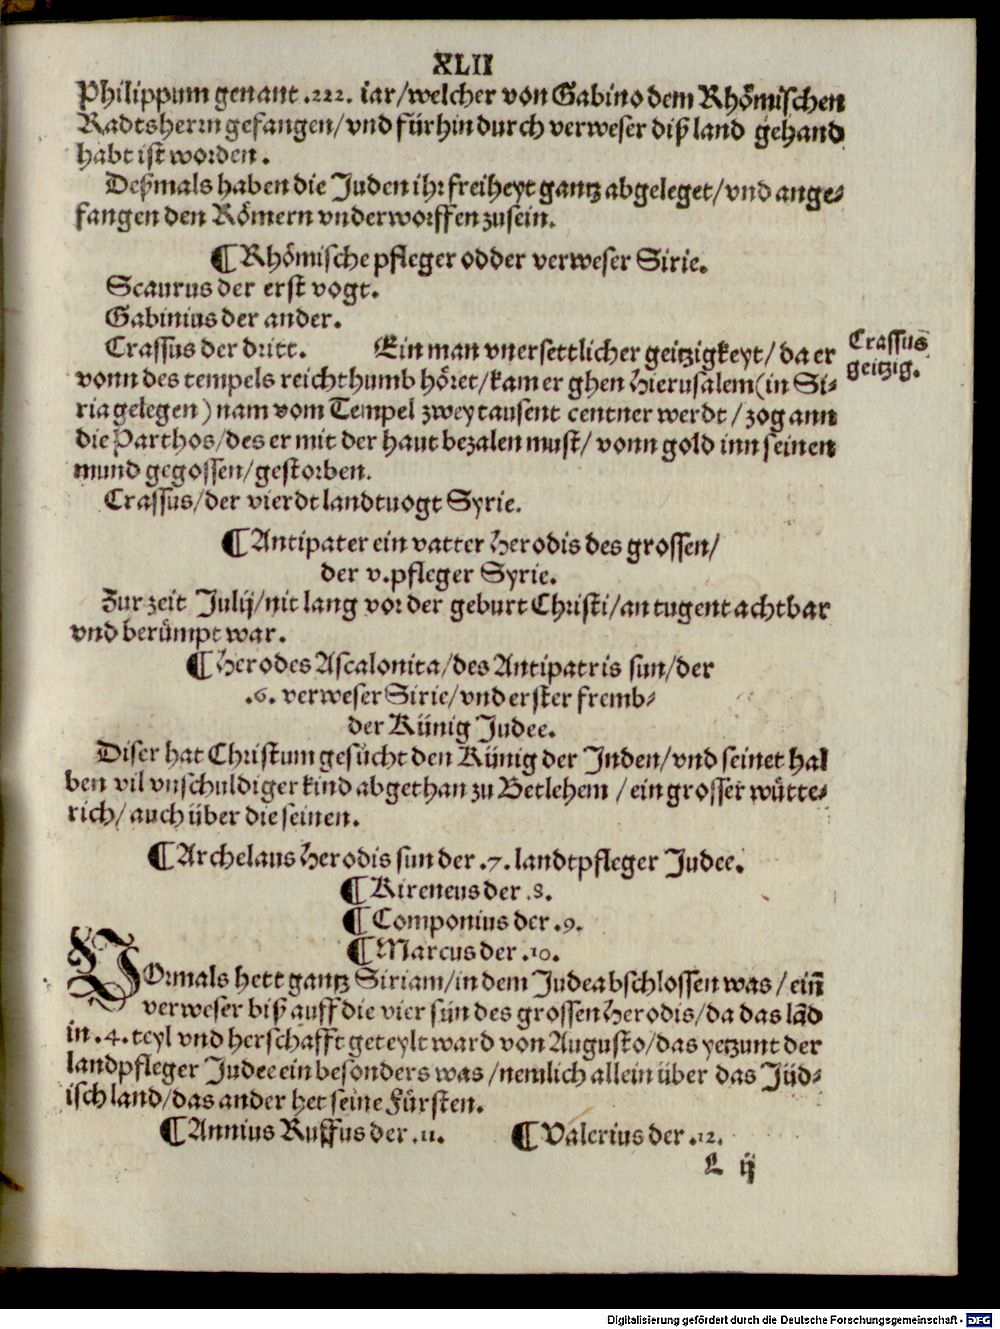 XLII
Philippum genant .222. iar/welcher von Gabino dem Rhömischen
Radtsherrn gefangen/vnd fürhin durch verweser diß land gehand
habt ist worden.
Deßmals haben die Juden ihr freiheyt gantz abgeleget/vnd ange⸗
fangen den Römern vnderworffen zusein.
¶Rhömische pfleger odder verweser Sirie.
Scaurus der erst vogt.
Gabinius der ander.
Crassus der dritt. Ein man vnersettlicher geitzigkeyt/da er
Crassus
geitzig.
vonn des tempels reichthumb höret/kam er ghen Hierusalem(in Si⸗
ria gelegen) nam vom Tempel zwey tausent centner werdt/zog ann
die Parthos/des er mit der haut bezalen must/vonn gold inn seinen
mund gegossen/gestorben.
Crassus/der vierdt landtuogt Syrie.
¶Antipater ein vatter Herodis des grossen/
der v.pfleger Syrie.
Zur zeit Julij/nit lang vor der geburt Christi/an tugent achtbar
vnd berümpt war.
¶Herodes Ascalonita/des Antipatris sun/der
.6. verweser Sirie/vnd erster fremb⸗
der Künig Judee.
Diser hat Christum gesücht den Künig der Juden/vnd seinet hal
ben vil vnschuldiger kind abgethan zu Betlehem/ein grosser wütte⸗
rich/auch über die seinen.
¶Archelaus Herodis sun der .7. landtpfleger Judee.
¶Kireneus der .8.
¶Componius der .9.
¶Marcus der .10.
VOrmals hett gantz Siriam/in dem Judea bschlossen was/ein̄
verweser biß auff die vier sün des grossen Herodis/da das lād
in .4. teyl vnd herschafft geteylt ward von Augusto/das yetzunt der
landpfleger Judee ein besonders was/nemlich allein über das Jüd⸗
isch land/das ander het seine Fürsten.
¶Annius Ruffus der .11. ¶Valerius der .12.
L ij
Digitalisierung gefördert durch die Deutsche Forschungsgemeinschaft - DFG